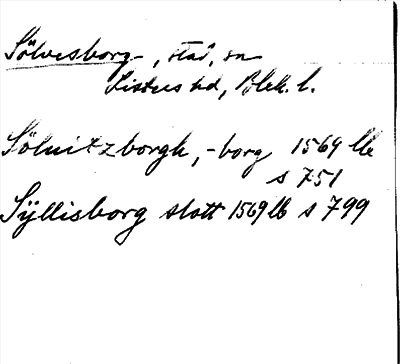 Sölvesborg, stad, sn
Listers hd, Blek. l.
Sölnitzborgh, -borg 1569 lb
s 751
Sÿllisborg slott 1569 lb s 799